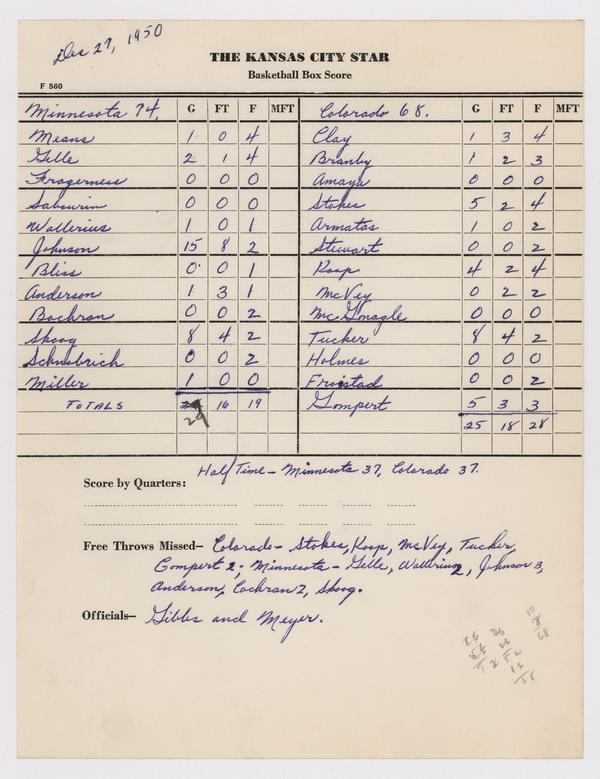 Dec 27, 1950
THE KANSAS CITY STAR
Basketball Box Score
F 560
Minnesota 74. G FT F MFT Colorado 68. G FT F MFT
Means 1 0 4 Clay 1 3 4
Gelle 2 1 4 Branby 1 2 3
Fragerness 0 0 0 Amaya 0 0 0
Sabourin 0 0 0 Stokes 5 2 4
Wallerius 1 0 1 Armatas 1 0 2
Johnson 15 8 2 Stewart 0 0 2
Bliss 0 0 1 Koop 4 2 4
Anderson 1 3 1 McVey 0 2 2
Bochran 0 0 2 McGonagle 0 0 0
Skoog 8 4 2 Tucker 8 4 2
Schnobrich 0 0 2 Holmes 0 0 0
Miller 1 0 0 Froistad 0 0 2
TOTALS 29 16 19 Gompert 5 3 3
29 25 18 28
Half Time - Minnesota 37, Colorado 37.
Score by Quarters:
Free Throws Missed— Colorado - Stokes, Koop, McVey, Tucker,
Gompert 2; Minnesota - Gelle, Wallerius 2, Johnson 3,
Anderson, Cochran 2, Skoog.
Officials— Gibbs and Meyer.